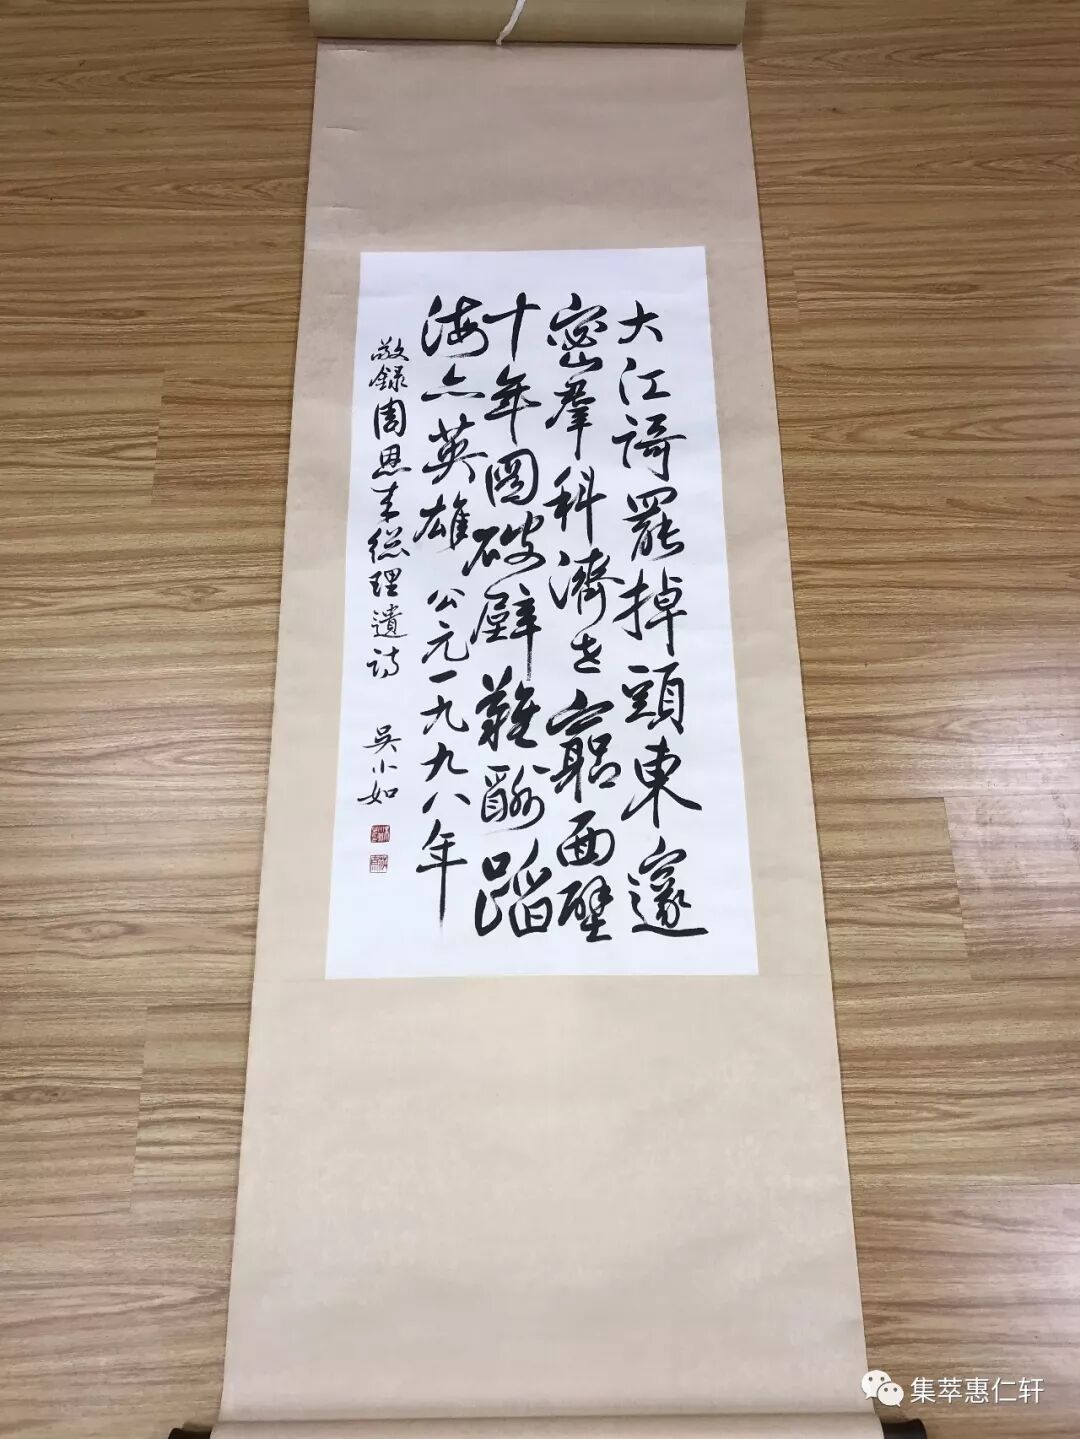 大江謌罷掉頭東邃
密羣科濟世窮面壁
十年圖破壁難酬蹈
海亦英雄 公元一九九八年
敬録周恩来総理遺詩 吳小如
集萃惠仁轩